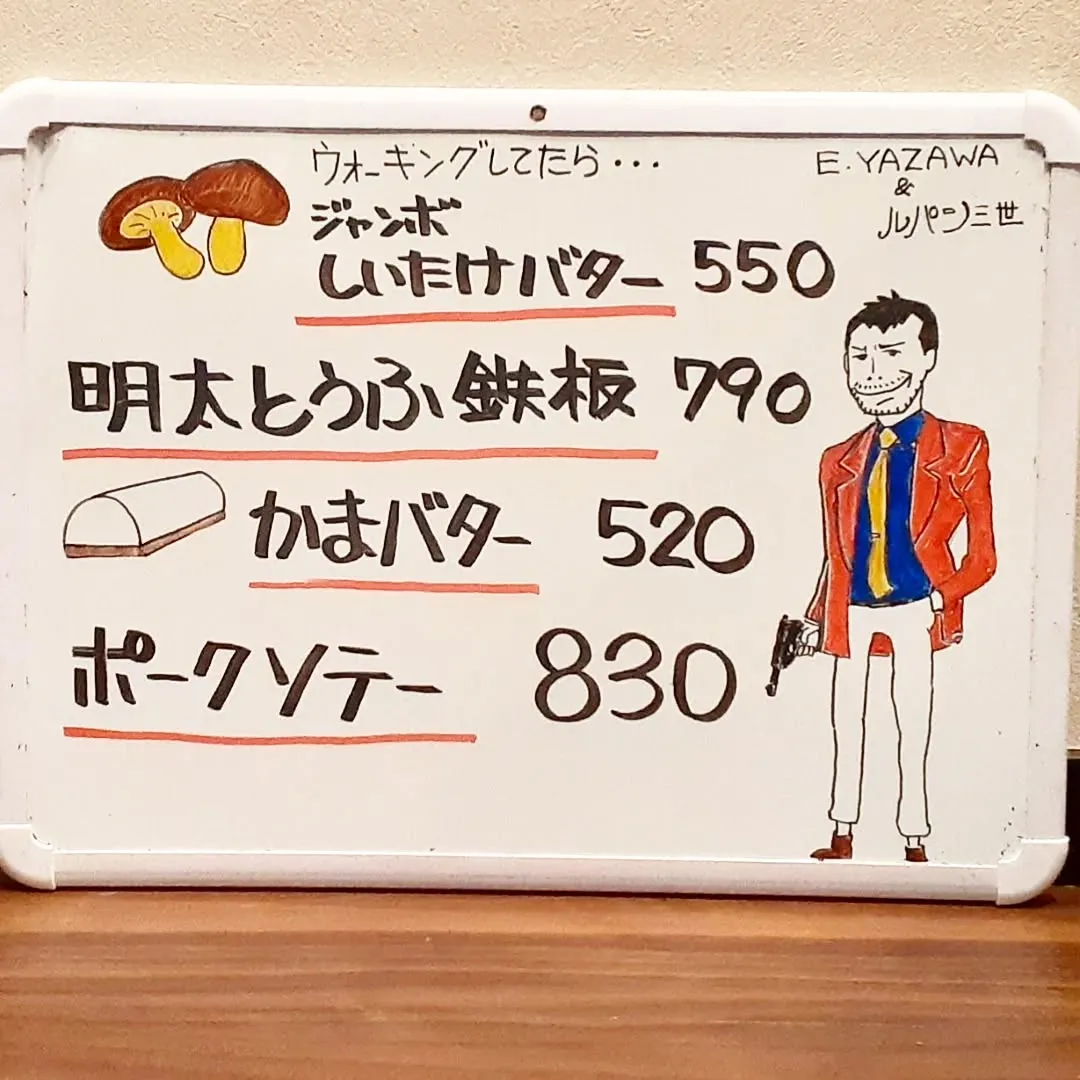 ウォーキングしてたら・・・
E.YAZAWA
&
ルパン三世
ジャンボ
しいたけバター 550
明太とうふ鉄板 790
かまバター 520
ポークソテー 830